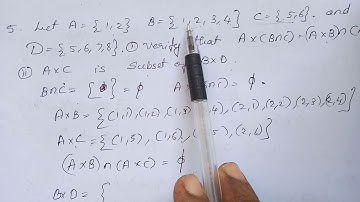 5. Let A = {1,2} B = {1,2,3,4} C = {5,6}. and
D = {5,6,7,8}. ① verify that A×(B∩C) = (A×B)∩(
⑪ A×C is subset of B×D.
B∩C = { } = ϕ A = ϕ.
A×B = {(1,1),(1,2),(1,3) (2,1),(2,2),(2,3),(2,4)}
A×C = {(1,5), (1,6), 5), (2,6)}
(A×B)∩(A×C) = ϕ
B×D = {